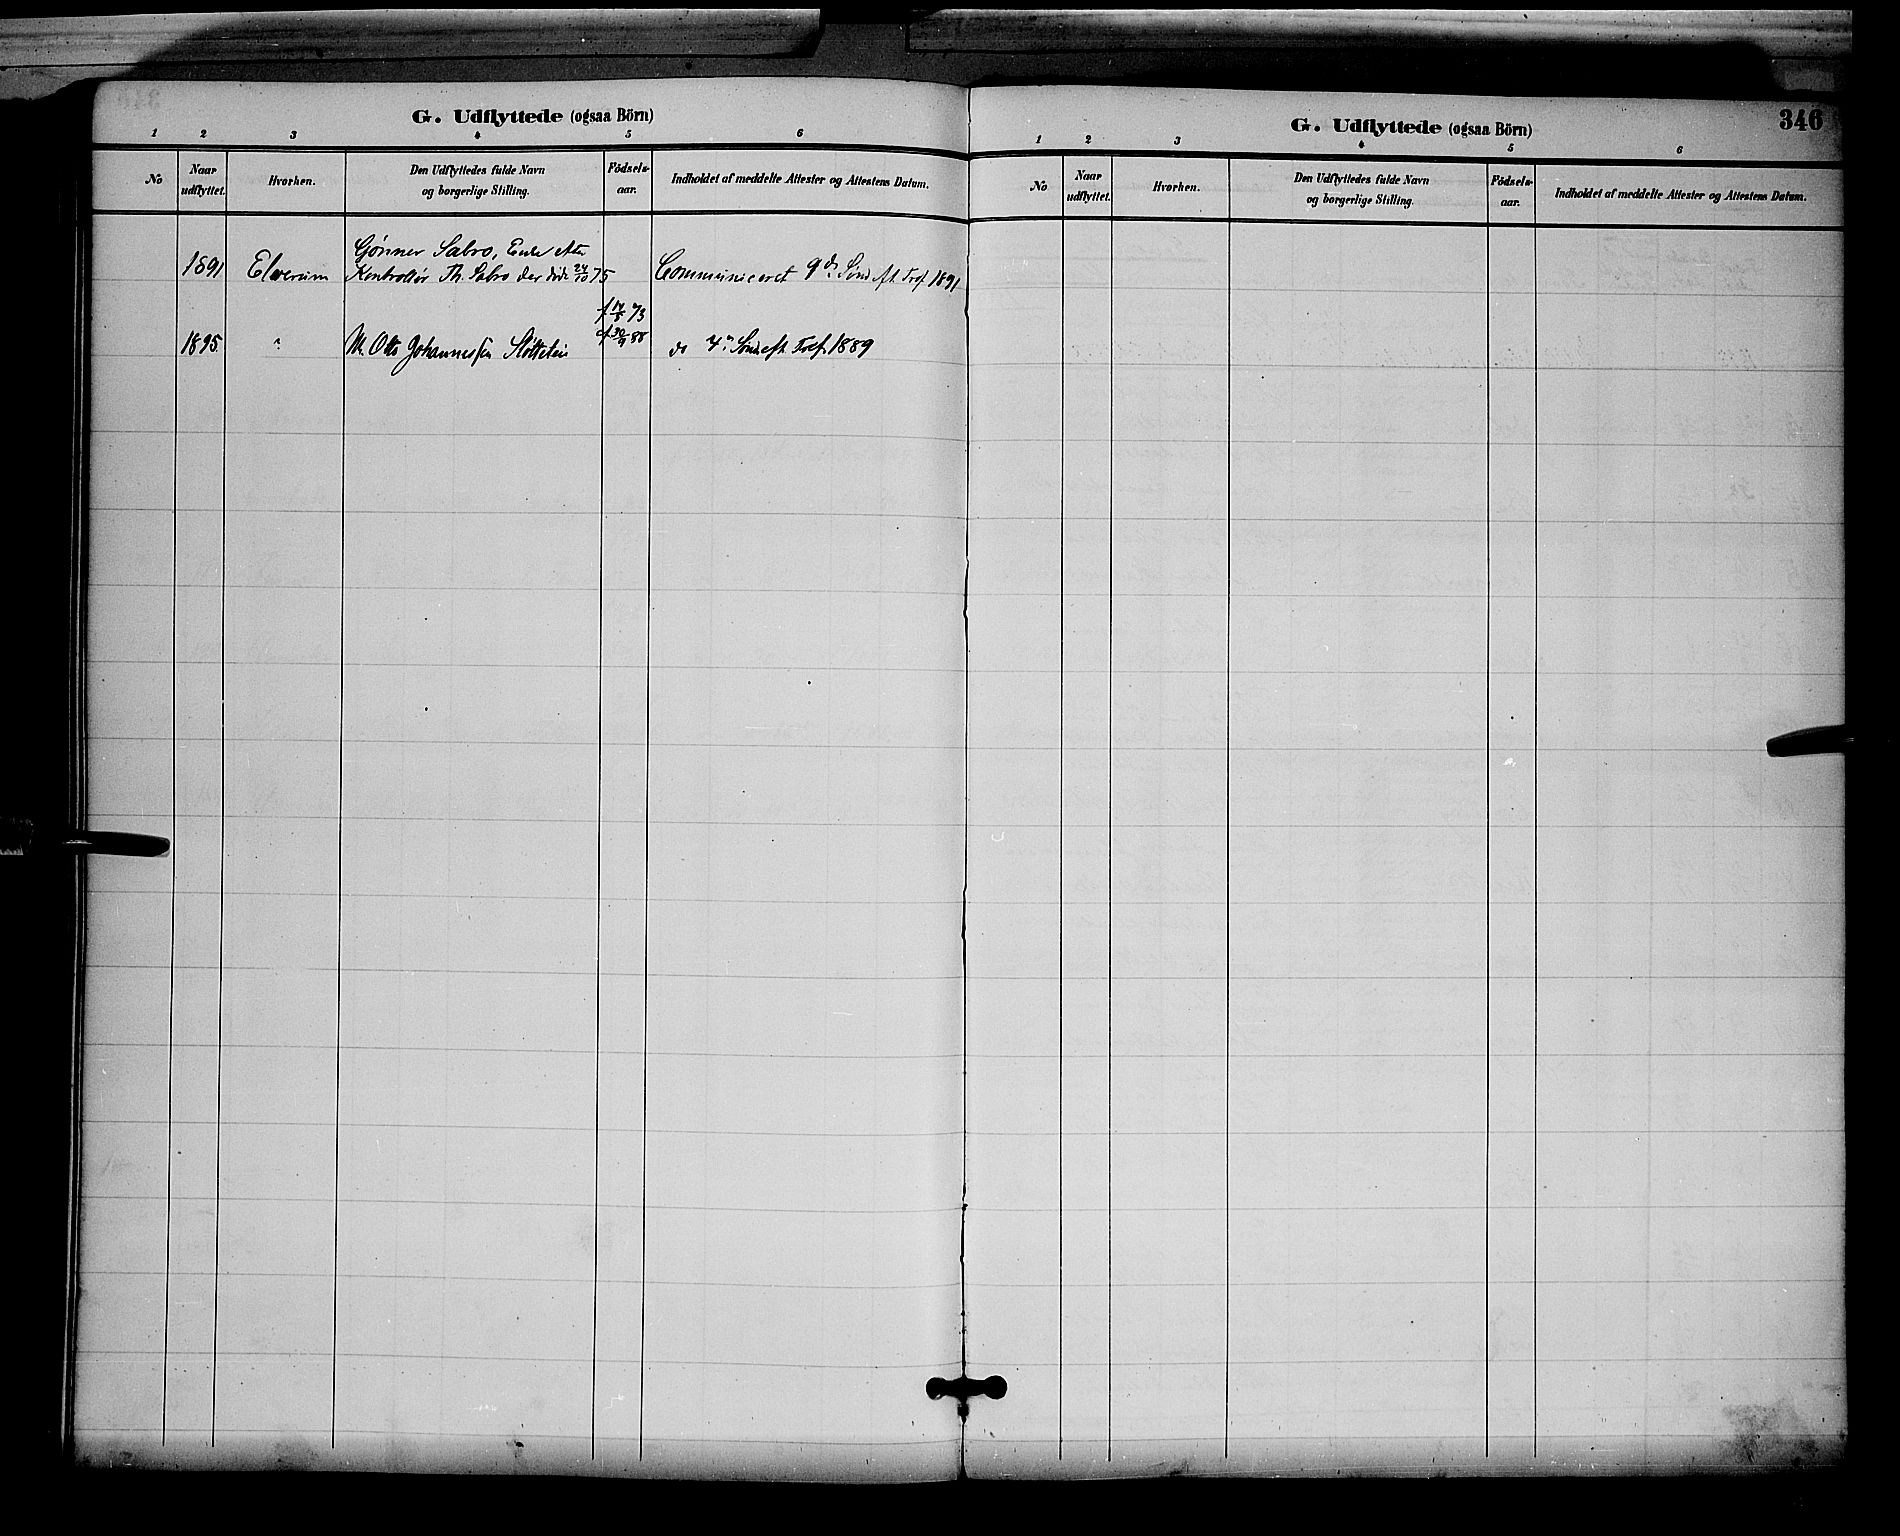 G. Udflyttede (ogsaa Börn)
1 2 3 4 5 6
No
Naar udflyttet.
Hvorhen.
Den Udflyttedes fulde Navn
og borgerlige Stilling.
Födsels-
aar.
Indholdet af meddelte Attester og Attestens Datum.
Gønner Sabro, Enke efter
1891 Elverum Kontrollør Th. Sabro der døde 24/10 75 Communiceret 9de Sønd eft Tref 1891
f 14/5 73
cf 30/9 88
1895 " Otto Johannessen do 4de Sønd eft Tref 1889
G. Udflyttede (ogsaa Börn)
346
1 2 3 4 5 6
No
Naar
udflyttet.
Hvorhen.
Den Udflyttedes fulde Navn
og borgerlige Stilling.
Födsels-
aar.
Indholdet af meddelte Attester og Attestens Datum.